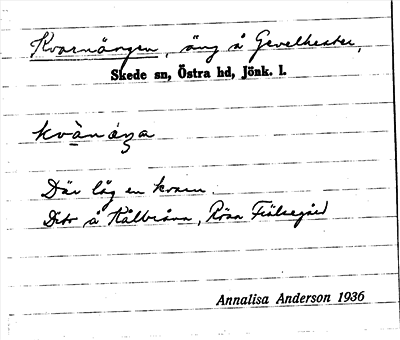 Kvarnängen, äng å Gevelhester,
Skede sn, Östra hd, Jönk. l.
kvànáŋa
Där låg en kvarn.
Dito å Kålbråna, Röan Fiälsegård
Annalisa Anderson 1936